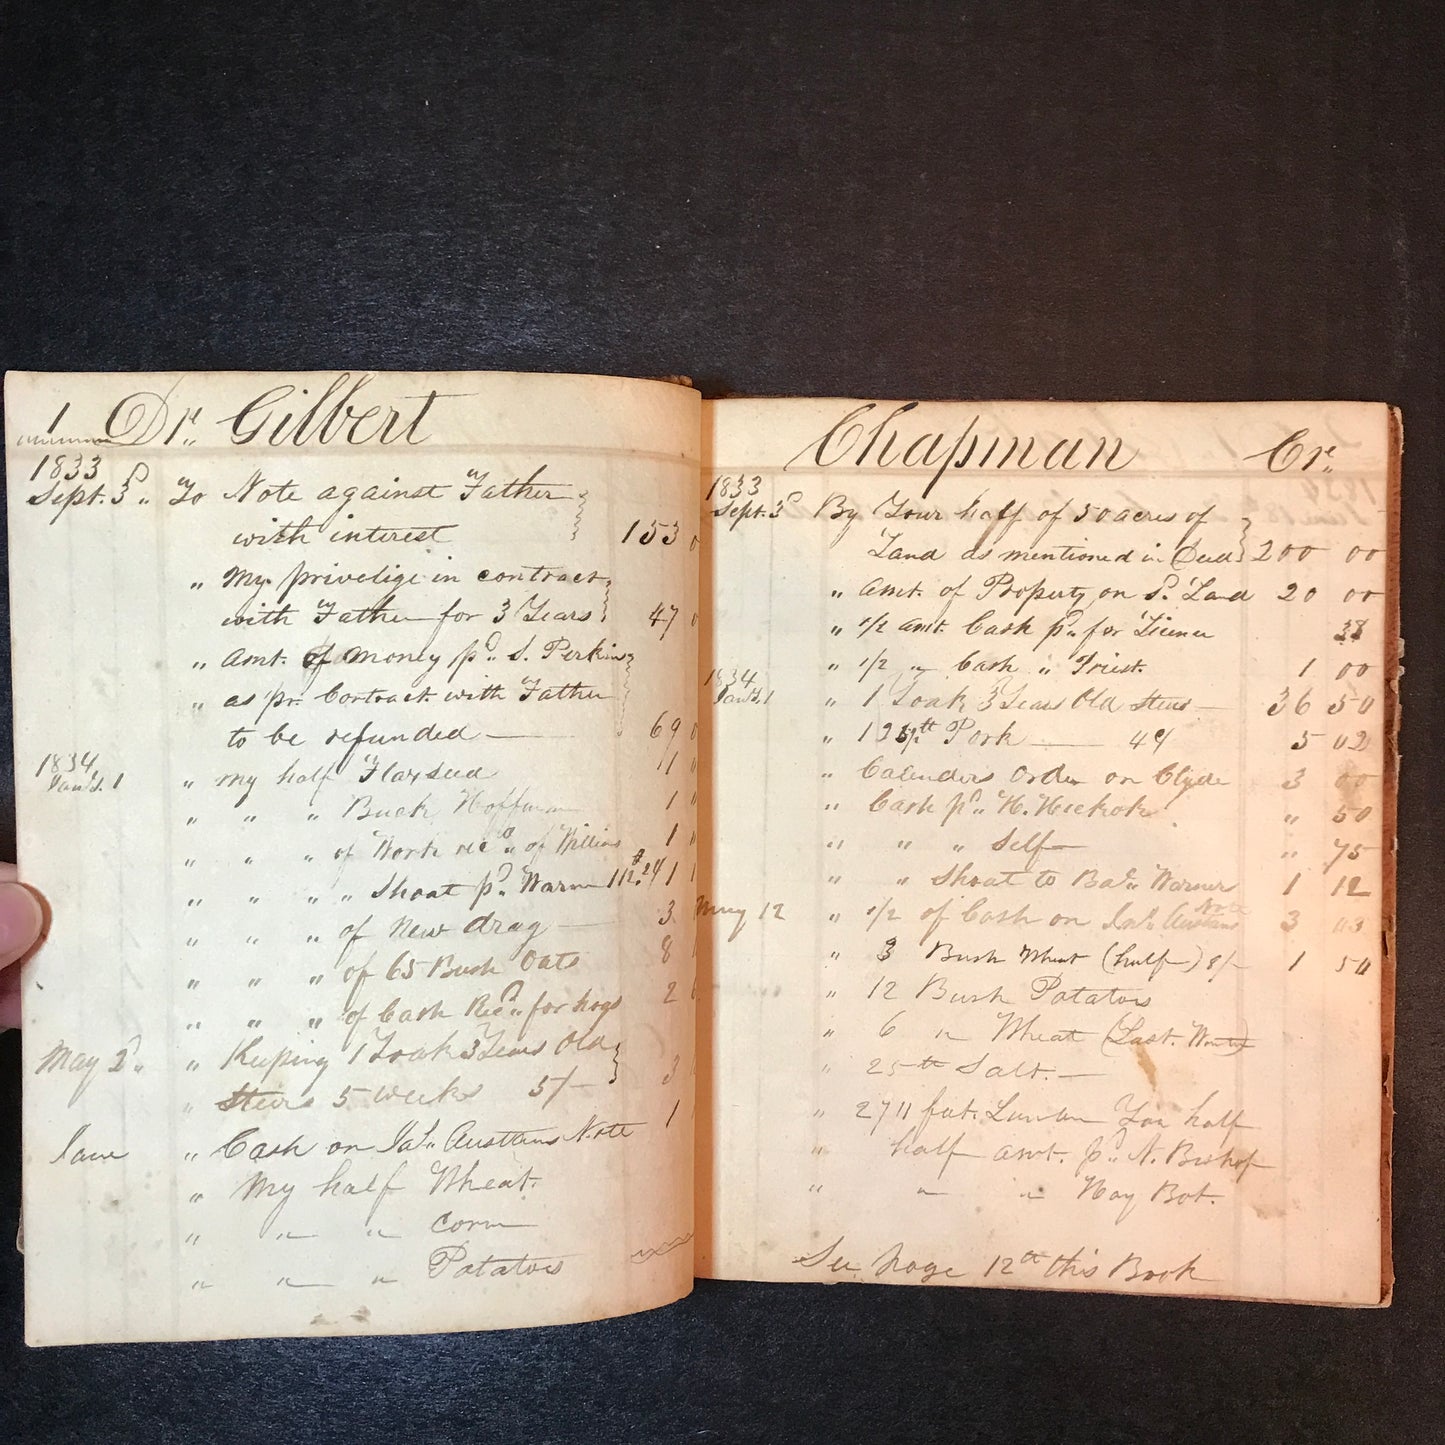 1 Dr. Gilbert
1833
Sept. 3d " To Note against Father
with interest 153 0
" My privelige in contract
with Father for 3 Years 47 0
" Amt. of Money pd. S. Perkins
" as pr. Contract with Father
to be refunded — 69 0
1834
Jany. 1 " my half Flaxseed 11 0
" " " Buck Hoffman 1 "
" " " of Work recd. of Willias 1 "
" " " " Shoat pd. Warn 1 1
" " " of New drag — 3
" " " of 65 Bush Oats 8
" " " of Cash Recd. for hogs 2
May 2d. " Keeping 1 Yoak 3 Years Old
" Steers 5 weeks 5/- 3
June " Cash on Jas. Austtans Note 1
" My half Wheat.
" " " corn
" " " Potatoes
Chapman Cr.
1833
Sept. 3d By Your half of 50 acres of
Land as mentioned in Deed 200 00
" Amt. of Property on Sd. Land 20 00
" 1/2 amt. Cash pd. for License 38
" 1/2 " Cash " Triest. 1 00
1834
Jany. 1 " 1 Yoak 3 Years Old Steers — 36 50
" Pork — 4 5 02
" Order on Clyde 3 00
" Cash pd. " H. Hickok " 50
" " " Self — " 75
" " Shoat to Warner 1 12
May 12 " 1/2 of Cash on Austtans Note 3 03
" 3 Bush Wheat (half) 8/- 1 50
" 12 Bush Potatoes
" 6 " Wheat (Last. Winter)
" 25 lb Salt. —
" 2711 feet. Your half
" half amt. pd. N. Bishop
" " " Hay Bot.
See page 12th this Book